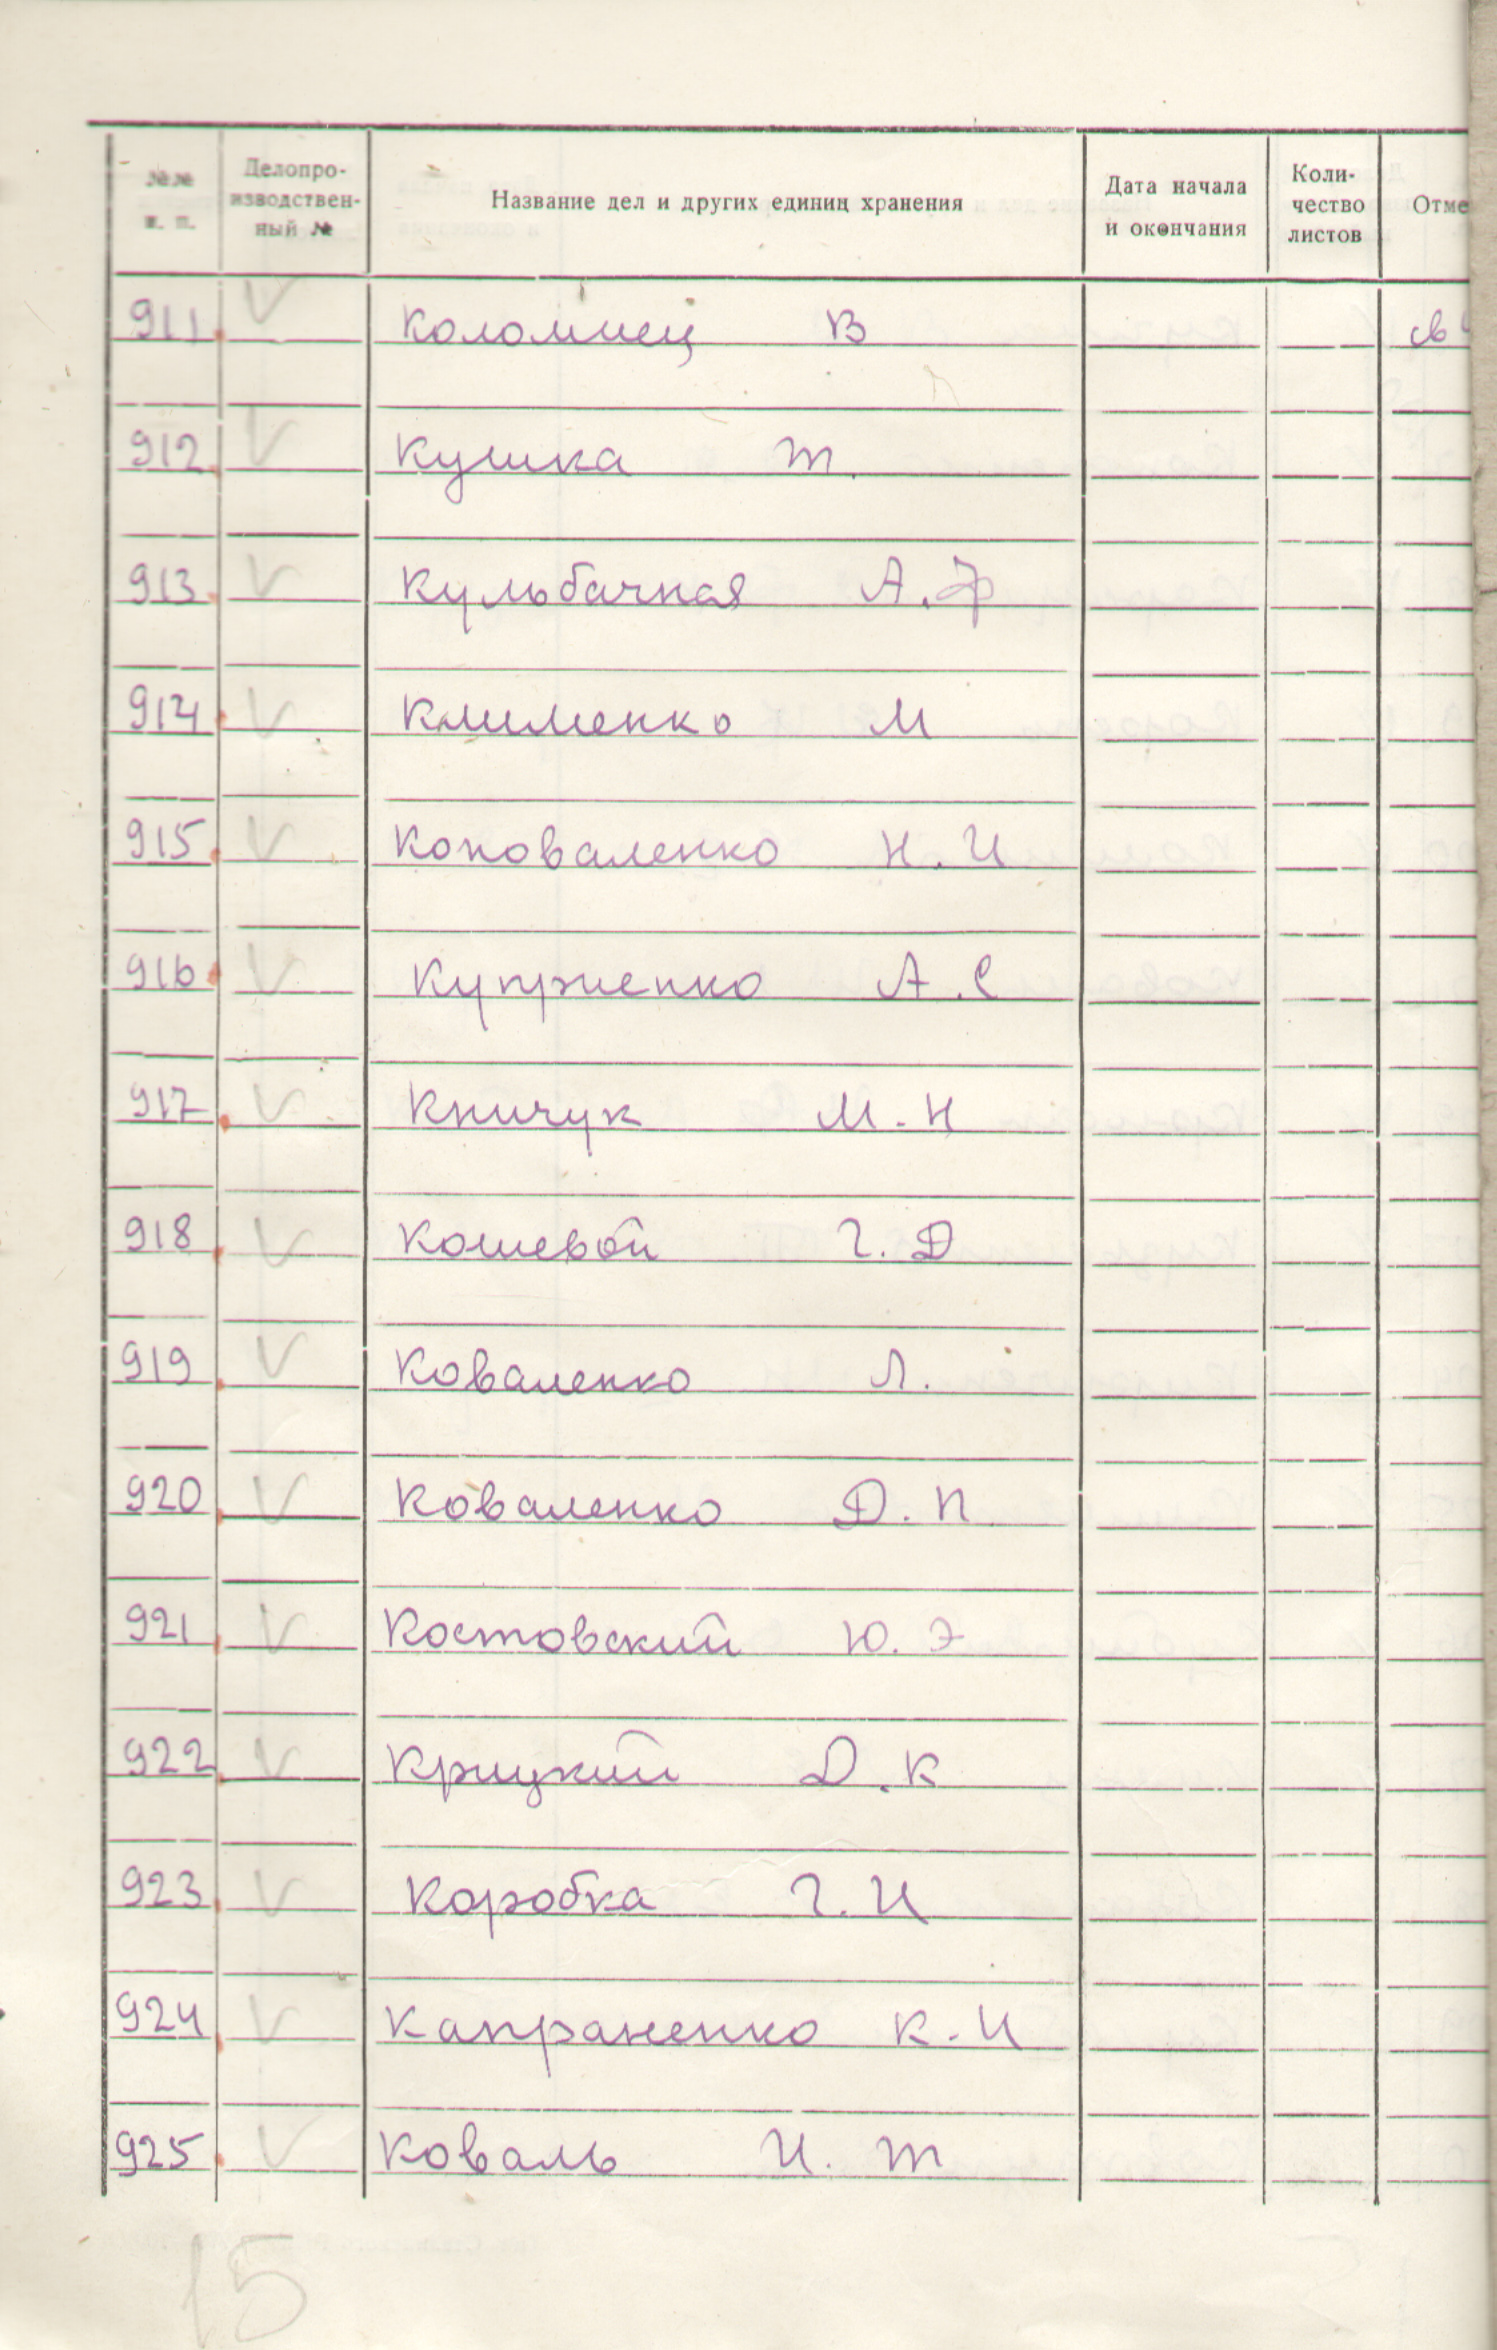 №№ п. п. Делопро-изводствен-ный № Название дел и других единиц хранения Дата начала и окончания Коли-чество листов Отме
911 Коломиец В св
912 Кушка Т.
913 Кульбачная А.Ф
914 Клименко М
915 Коноваленко Н.И
916 Куприенко А.С
917 Кничук М.Н
918 Кошевой Г.Д
919 Коваленко Л.
920 Коваленко Д.П
921 Костовский Ю.Э
922 Крицкий Д.К
923 Коробка Г.И
924 Капраненко К.И
925 Коваль И.Т
15